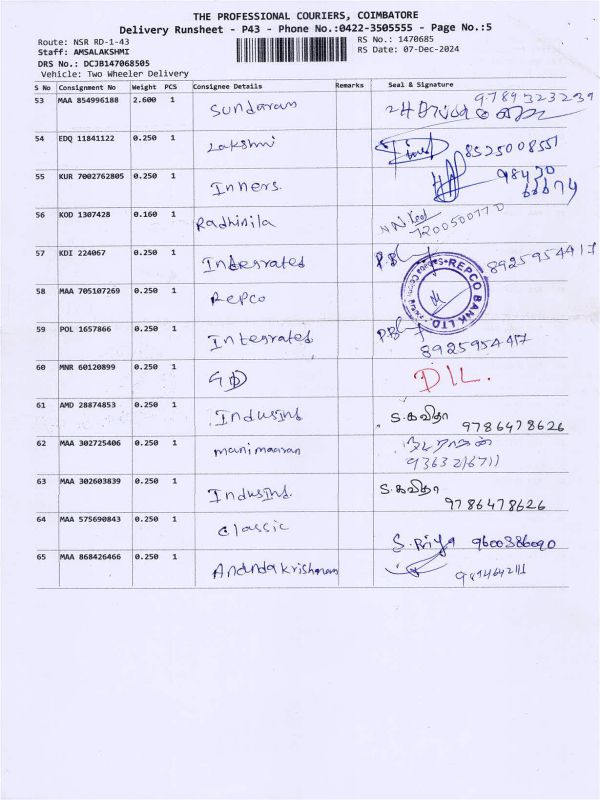 THE PROFESSIONAL COURIERS, COIMBATORE
Delivery Runsheet - P43 - Phone No.:0422-3505555 - Page No.:5
Route: NSR RD-1-43 RS No.: 1470685
Staff: AMSALAKSHMI RS Date: 07-Dec-2024
DRS No.: DCJB147068505
Vehicle: Two Wheeler Delivery
S No Consignment No Weight PCS Consignee Details Remarks Seal & Signature
53 MAA 854996188 2.600 1 Sundaram 9789323239
54 EDQ 11841122 0.250 1 Lakshmi 8525008551
55 KUR 7002762805 0.250 1 Inners. 98430
56 KOD 1307428 0.160 1 Radhinila 7200500770
57 KDI 224067 0.250 1 Integrated P.B 8925954417
58 MAA 705107269 0.250 1 Repco REPCO BANK LTD
59 POL 1657866 0.250 1 Integrated P.B 8925954417
60 MNR 60120899 0.250 1 GD DIL.
61 AMD 28874853 0.250 1 IndusInd S.கவிதா 9786478626
62 MAA 302725406 0.250 1 manimaaran 9363216711
63 MAA 302603839 0.250 1 IndusInd. S.கவிதா 9786478626
64 MAA 575690843 0.250 1 Classic S. Priya 9600386090
65 MAA 868426466 0.250 1 Anandakrishnan